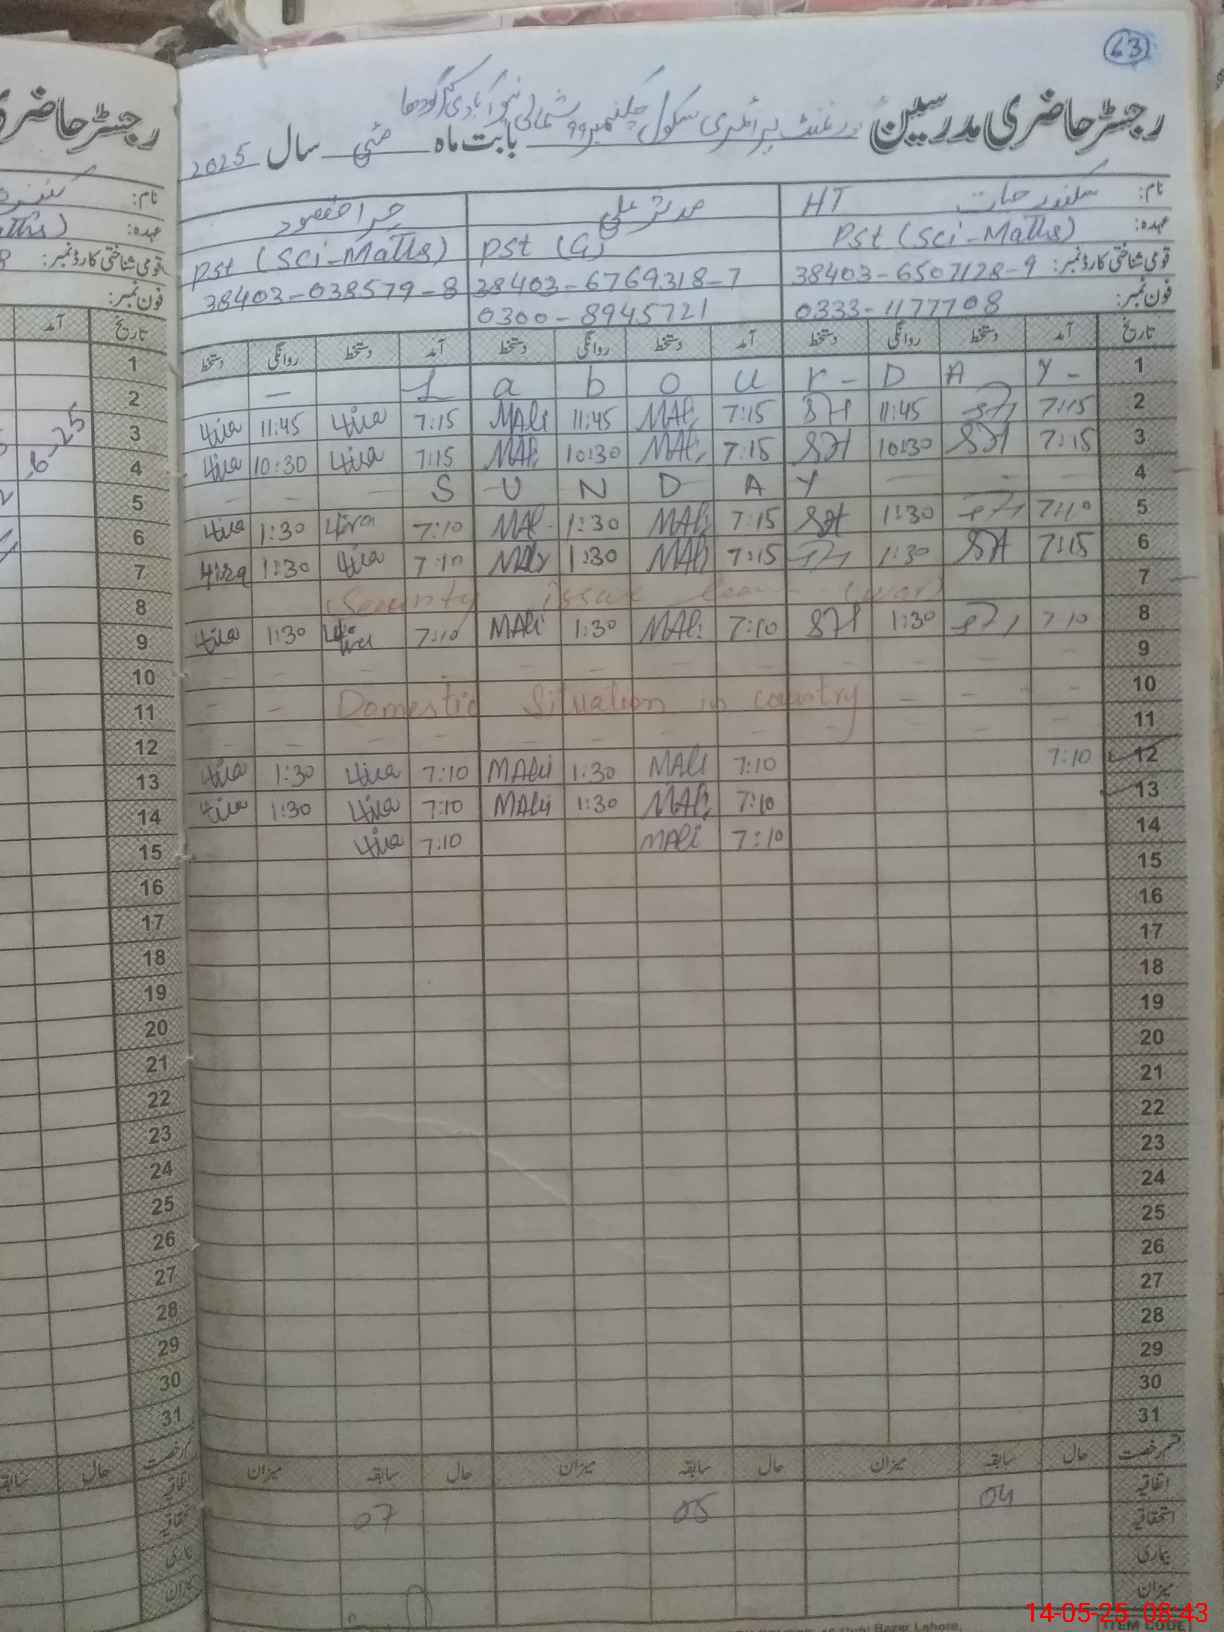 63
رجسٹر حاضری مدرسین گورنمنٹ پرائمری سکول چک نمبر 99 شمالی بابت ماہ مئی سال 2025
نام: سکندر حیات HT مدثر علی حرا مقصود
عہدہ: Pst (Sci-Maths) Pst (G) Pst (Sci-Maths)
قومی شناختی کارڈ نمبر: 38403-6507128-9 38403-6769318-7 38403-038579-8
فون نمبر: 0333-1177708 0300-8945721
تاریخ آمد دستخط روانگی دستخط آمد دستخط روانگی دستخط آمد دستخط روانگی دستخط
1 Labour - DAY -
2 7:15 11:45 SH 7:15 MALi 11:45 MALi 7:15 Hira 11:45 Hira
3 7:15 SH 10:30 SH 7:15 MALi 10:30 MALi 7:15 Hira 10:30 Hira
4 SUNDAY
5 7:10 1:30 SH 7:15 MALi 1:30 MALi 7:10 Hira 1:30 Hira
6 7:15 SH 1:30 7:15 MALi 1:30 MALi 7:10 Hira 1:30 Hira
7 Security issue (war)
8 7:10 1:30 SH 7:10 MALi 1:30 MALi 7:10 Hira 1:30 Hira
9
10 Domestic Situation in country
11
12 7:10 7:10 MALi 1:30 MALi 7:10 Hira 1:30 Hira
13 7:10 MALi 1:30 MALi 7:10 Hira 1:30 Hira
14 7:10 MALi 7:10 Hira
15
16
17
18
19
20
21
22
23
24
25
26
27
28
29
30
31
قسم رخصت حال سابقہ میزان حال سابقہ میزان حال سابقہ میزان
اتفاقیہ 04 05 07
استحقاقیہ
بیماری
میزان
14-05-25 08:43
ITEM CODE